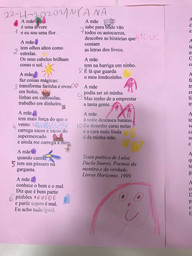 22-11-2020 MARIANA
A mãe
é uma árvore
e eu sou uma flor.
A mãe
tem olhos altos como
estrelas.
Os seus cabelos brilham
como o sol.
A mãe
faz coisas mágicas:
transforma farinha e ovos
em bolos,
linhas em camisolas,
trabalho em dinheiro.
A mãe
tem mais força do que o
vento:
carrega sacos e sacos
do supermercado
e ainda me carrega a mim.
A mãe
quando canta
tem um pássaro na
garganta.
A mãe
conhece o bem e o mal.
Diz que é bem partir
pinhões
e partir copos é mal.
Eu acho tudo igual.
A mãe
sabe para onde vão
todos os autocarros,
descobre as histórias que
contam
as letras dos livros.
A mãe
tem na barriga um ninho.
É lá que guarda
o meu irmãozinho.
A mãe
podia ser só minha.
Mas tenho de a emprestar
a tanta gente...
A mãe
à noite descasca batatas.
Eu desenho caras nelas
e a cara mais linda
é da minha mãe.
Texto poético de Luísa
Ducla Soares, Poemas da
mentira e da verdade,
Livros Horizonte, 1999